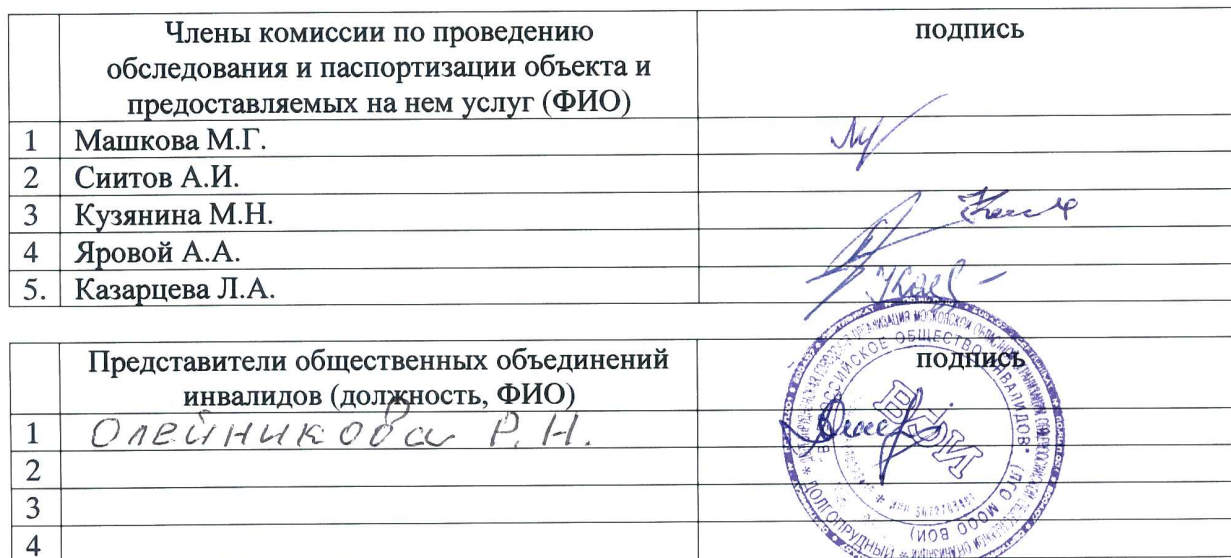 Члены комиссии по проведению подпись
обследования и паспортизации объекта и
предоставляемых на нем услуг (ФИО)
1 Машкова М.Г.
2 Сиитов А.И.
3 Кузянина М.Н.
4 Яровой А.А.
5. Казарцева Л.А.
Представители общественных объединений подпись
инвалидов (должность, ФИО)
1 Олейникова Р.Н.
2
3
4
ВСЕРОССИЙСКОЕ ОБЩЕСТВО ИНВАЛИДОВ" (ДГО МООО ВОИ)
ВОИ
* ДОЛГОПРУДНЫЙ *